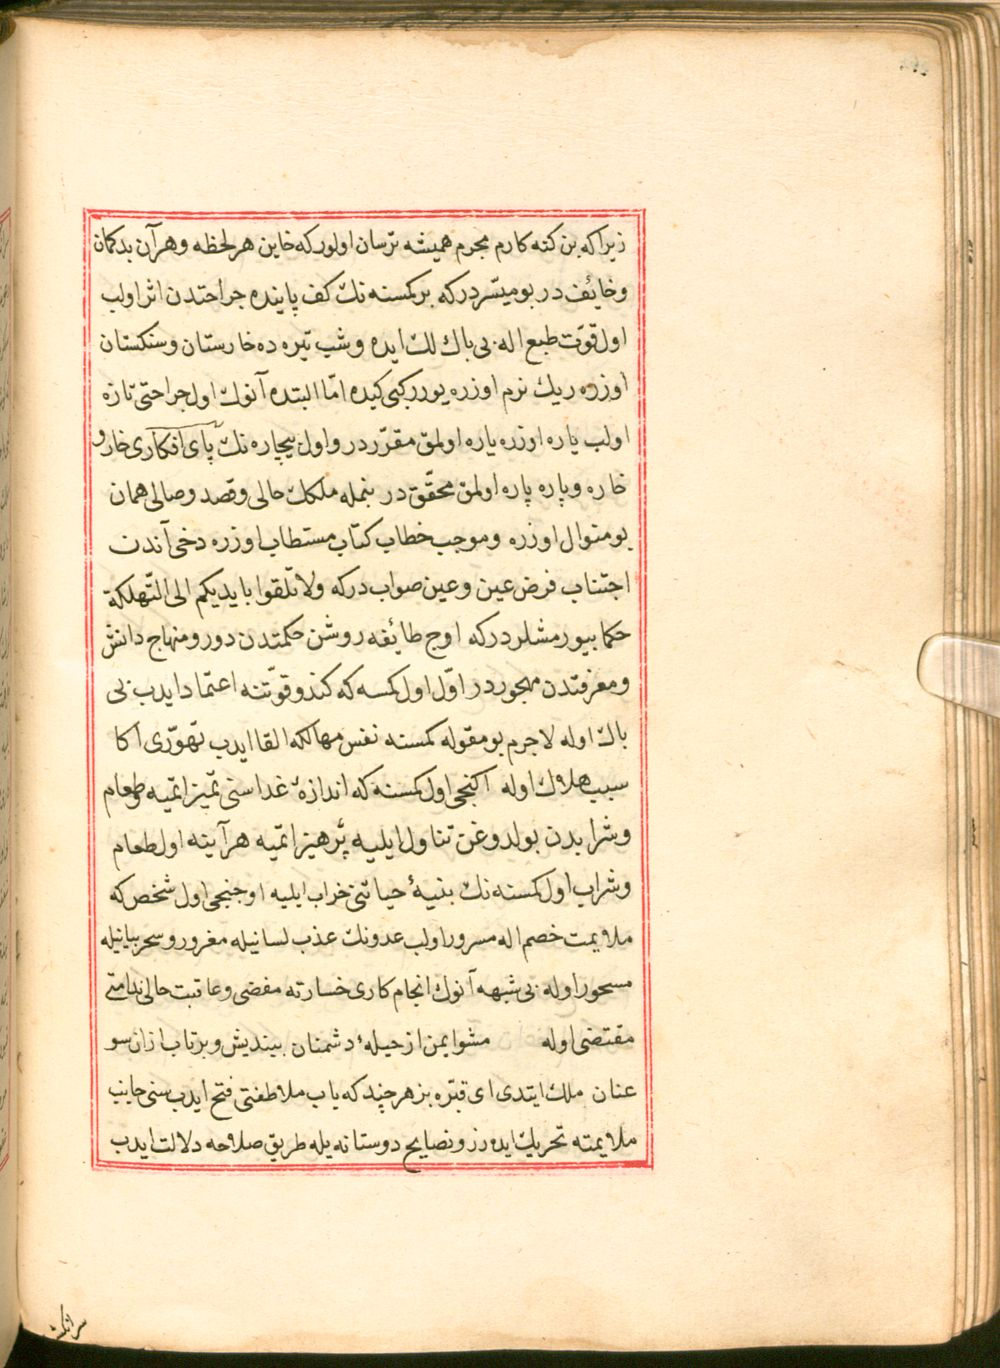 زیرا که بن کنه کارم مجرم همیشه ترسان اولور که خاین هر لحظه و هر آن بدکمان
و خائف در بو میسّر در که بر کمسنه نك کف پاینده جراحتدن اثر اولب
اول قوّت طبع اله بی باك لك ایده و شب تیره ده خارستان و سنکستان
اوزره ریك نرم اوزره یورر کبی کیده امّا البتده آنوك اول جراحتی تازه
اولب یاره اوزره یاره اولمق مقرّر در و اول بیچاره نك پای افکاری خار و
خاره و پاره پاره اولمق محقّق در بنمله ملکك حالی و قصد وصالی همان
بو منوال اوزره و موجب خطاب کتاب مستطاب اوزره دخی آندن
اجتناب فرض عین و عین صواب در که ولا تلقوا بایدیکم الی التّهلکة
حکما بیورمشلردر که اوج طائفه روشن حکمتدن دور و منهاج دانش
و معرفتدن مهجور در اوّل اول کمسه که کندو قوّتنه اعتماد ایدب بی
باك اوله لاجرم بو مقوله کمسنه نفس مهالکه القا ایدب تهوّری اکا
سبب هلاك اوله اکنجی اول کمسنه که اندازهٔ غداسنی تمیز اتمیه طعام
و شرابدن بولدوغن تناول ایلیه پرهیز اتمیه هر آینه اول طعام
و شراب اول کمسنه نك بنیهٔ حیاتنی خراب ایلیه اوجنجی اول شخص که
ملایمت خصم اله مسرور اولب عدونك عذب لسانیله مغرور و سحر بیانیله
مسحور اوله بی شبهه آنوك انجام کاری خسارته مفضی و عاقبت حالی ندامتی
مقتضی اوله مشو ایمن از حیلهٔ دشمنان بیندیش و برتاب ازان سو
عنان ملك ایتدی ای قبّره بز هر چند که باب ملاطفتی فتح ایدب سنی جانب
ملایمته تحریك ایده رز و نصایح دوستانه یله طریق صلاحه دلالت ایدب